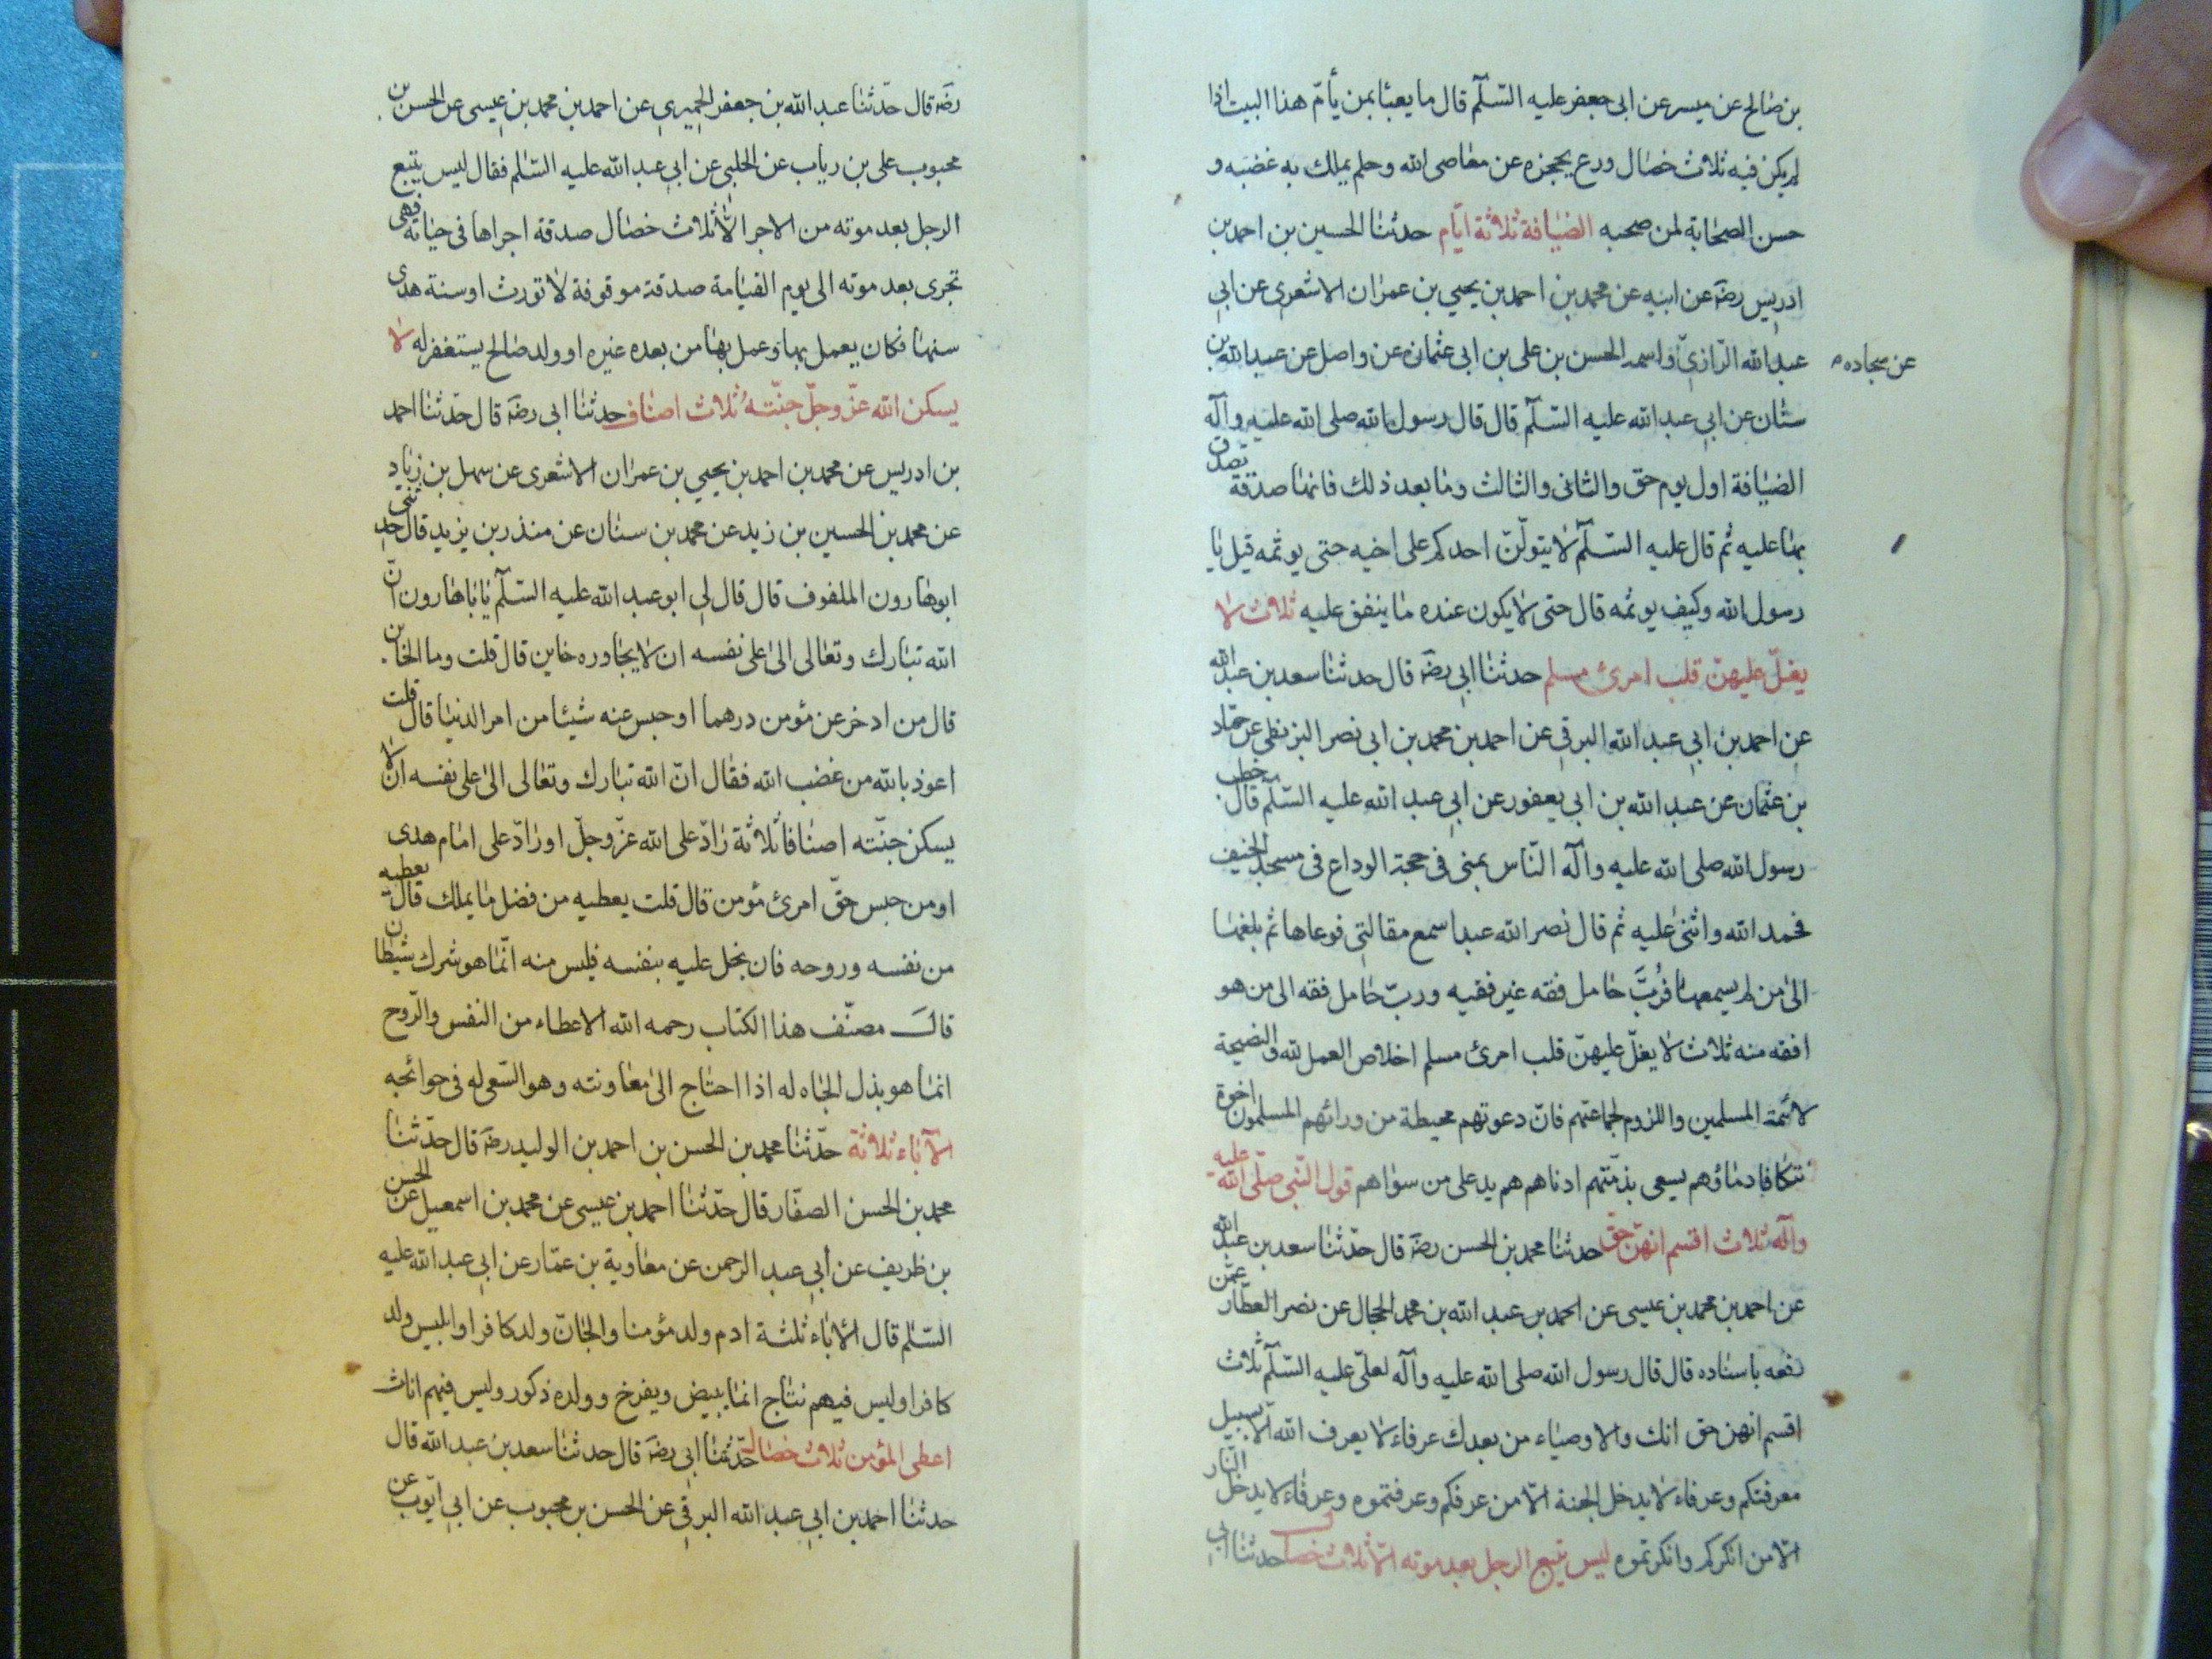 بن صالح عن ميسر عن ابى جعفر عليه السّلٓم قال ما يعبئا بمن يأمّ هذا البيت اذا
لم يكن فيه ثلاث خصال ورع يحجزه عن معاصى الله وحلم يملك به غضبه و
حسن الصحابة لمن صحبه الضيافة ثلاثة ايّام حدثنا الحسين بن احمد بن
ادريس رضَه عن ابيه عن محمد بن احمد بن يحيى بن عمران الاشعرى عن ابى
عبد الله الرّازىّ واسمه الحسن بن على بن ابى عثمان عن واصل عن عبد الله بن
عن سجاده
سنان عن ابى عبد الله عليه السّلٓم قال قال رسول الله صلى الله عليه وآله
الضيافة اول يوم حق والثانى والثالث وما بعد ذلك فانها صدقة تصدق
بها عليه ثم قال عليه السّلٓم لا يتولّنّ احدكم على اخيه حتى يوثمه قيل يا
رسول الله وكيف يوثمه قال حتى لا يكون عنده ما ينفق عليه ثلاث لا
يغلّ عليهنّ قلب امرئ مسلم حدثنا ابى رضَه قال حدثنا سعد بن عبد الله
عن احمد بن ابى عبد الله البرقى عن احمد بن محمد بن ابى نصر البزنطى عن حمّاد
بن عثمان عن عبد الله بن ابى يعفور عن ابى عبد الله عليه السّلٓم قال خطب
رسول الله صلى الله عليه وآله النّاس بمنى فى حجة الوداع فى مسجد الخيف
فحمد الله واثنى عليه ثم قال نصر الله عبدا سمع مقالتى فوعاها ثم بلغها
الى من لم يسمعها فرُبَّ حامل فقه غير فقيه وربّ حامل فقه الى من هو
افقه منه ثلاث لا يغلّ عليهنّ قلب امرئ مسلم اخلاص العمل لله والنصيحة
لائمة المسلمين واللزوم لجماعتهم فانّ دعوتهم محيطة من ورائهم المسلمون اخوة
تتكافا دماؤهم يسعى بذمّتهم ادناهم هم يد على من سواهم قول النّبى صلّى الله عليه
وآله ثلاث اقسم انهنّ حقّ حدثنا محمد بن الحسن رضَه قال حدّثنا سعد بن عبد الله
عن احمد بن محمد بن عيسى عن احمد بن عبد الله بن محمد الحجال عن نصر العطّار عمّن
رفعه باسناده قال قال رسول الله صلى الله عليه وآله لعلىّ عليه السّلٓم ثلاث
اقسم انهن حق انك والاوصياء من بعدك عرفاء لا يعرف الله الّا بسبيل
معرفتكم وعرفاء لا يدخل الجنة الّا من عرفكم وعرفتموه وعرفاء لا يدخل النّار
الّا من انكركم وانكرتموه ليس يتبع الرجل بعد موته الّا ثلاث خصال حدثنا ابى
رضَه قال حدّثنا عبد الله بن جعفر الحميرى عن احمد بن محمد بن عيسى عن الحسن بن
محبوب على بن رياب عن الحلبى عن ابى عبد الله عليه السّلم فقال ليس يتبع
الرجل بعد موته من الاجر الّا ثلاث خصال صدقة اجراها فى حياته فهى
تجرى بعد موته الى يوم القيامة صدقة موقوفة لا تورث او سنة هدى
سنها فكان يعمل بها وعمل بها من بعده غيره او ولد صالح يستغفر له لا
يسكن الله عزّ وجلّ جنّته ثلاث اصناف حدثنا ابى رضَه قال حدّثنا احمد
بن ادريس عن محمد بن احمد بن يحيى بن عمران الاشعرى عن سهل بن زياد
عن محمد بن الحسين بن زيد عن محمد بن سنان عن منذر بن يزيد قال حدثنى
ابو هارون الملفوف قال قال لى ابو عبد الله عليه السّلٓم يا باهارون انّ
الله تبارك وتعالى الى على نفسه ان لا يجاوره خاين قال قلت وما الخاين
قال من ادخر عن مؤمن درهما او حبس عنه شيئا من امر الدنيا قال قلت
اعوذ بالله من غضب الله فقال انّ الله تبارك وتعالى الى على نفسه ان لا
يسكن جنّته اصنافا ثلاثة رادّ على الله عزّ وجلّ او رادّ على امام هدى
او من حبس حقّ امرئ مؤمن قال قلت يعطيه من فضل ما يملك قال يعطيه
من نفسه وروحه فان بخل عليه بنفسه فليس منه انّما هو شرك شيطان
قال مصنّف هذا الكتاب رحمه الله الاعطاء من النفس والرّوح
انما هو بذل الجاه له اذا احتاج الى معاونته وهو السّعى له فى حوائجه
الآباء ثلاثة حدّثنا محمد بن الحسن بن احمد بن الوليد رضَه قال حدّثنا
محمد بن الحسن الصفّار قال حدّثنا احمد بن عيسى عن محمد بن اسمعيل عن الحسن
بن ظريف عن أبى عبد الرحمن عن معاوية بن عمّار عن ابى عبد الله عليه
السّلم قال الاباء ثلثة ادم ولد مؤمنا والجانّ ولد كافرا وابليس ولد
كافرا وليس فيهم نتاج انما يبيض ويفرخ وولده ذكور وليس فيهم اناث
اعطى المؤمن ثلاث خصال حدّثنا ابى رضَه قال حدثنا سعد بن عبد الله قال
حدثنا احمد بن ابى عبد الله البرقى عن الحسن بن محبوب عن ابى ايّوب عن